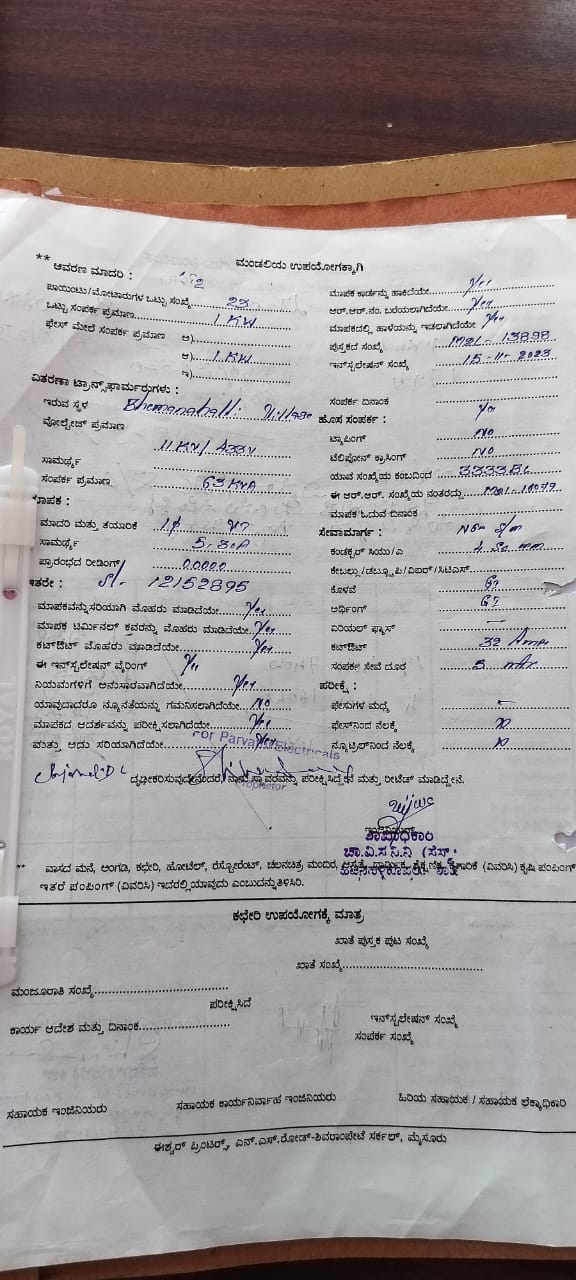 ಮಂಡಲಿಯ ಉಪಯೋಗಕ್ಕಾಗಿ
** ಆವರಣ ಮಾದರಿ :
ಪಾಯಿಂಟು/ಮೋಟಾರುಗಳ ಒಟ್ಟು ಸಂಖ್ಯೆ 23
ಒಟ್ಟು ಸಂಪರ್ಕ ಪ್ರಮಾಣ 1 KW
ಫೇಸ್ ಮೇಲೆ ಸಂಪರ್ಕ ಪ್ರಮಾಣ ಅ)
ಆ) 1 KW
ಇ)
ವಿತರಣಾ ಟ್ರಾನ್ಸ್‌ಫಾರ್ಮರುಗಳು :
ಇರುವ ಸ್ಥಳ Bhemanahalli Village
ವೋಲ್ಟೇಜ್ ಪ್ರಮಾಣ
11 KV/ 433V
ಸಾಮರ್ಥ್ಯ
ಸಂಪರ್ಕ ಪ್ರಮಾಣ 63 KVA
ಮಾಪಕ :
ಮಾದರಿ ಮತ್ತು ತಯಾರಿಕೆ 1φ
ಸಾಮರ್ಥ್ಯ 5-30A
ಪ್ರಾರಂಭದ ರೀಡಿಂಗ್ 00000
ಇತರೇ : Sl- 12152895
ಮಾಪಕವನ್ನು ಸರಿಯಾಗಿ ಮೊಹರು ಮಾಡಿದೆಯೇ Yes
ಮಾಪಕ ಟರ್ಮಿನಲ್ ಕವರನ್ನು ಮೊಹರು ಮಾಡಿದೆಯೇ Yes
ಕಟ್‌ಔಟ್ ಮೊಹರು ಮಾಡಿದೆಯೇ Yes
ಈ ಇನ್‌ಸ್ಟಲೇಷನ್ ವೈರಿಂಗ್ Yes
ನಿಯಮಗಳಿಗೆ ಅನುಸಾರವಾಗಿದೆಯೇ Yes
ಯಾವುದಾದರೂ ನ್ಯೂನತೆಯನ್ನು ಗಮನಿಸಲಾಗಿದೆಯೇ No
ಮಾಪಕದ ಆದರ್ಶವನ್ನು ಪರೀಕ್ಷಿಸಲಾಗಿದೆಯೇ Yes
ಮತ್ತು ಅದು ಸರಿಯಾಗಿದೆಯೇ Yes
ಮಾಪಕ ಕಾರ್ಡನ್ನು ಹಾಕಿದೆಯೇ Yes
ಆರ್.ಆರ್.ನಂ. ಬರೆಯಲಾಗಿದೆಯೇ Yes
ಮಾಪಕದಲ್ಲಿ ಹಾಳೆಯನ್ನು ಇಡಲಾಗಿದೆಯೇ Yes
ಪುಸ್ತಕದ ಸಂಖ್ಯೆ 13898
ಇನ್‌ಸ್ಟಲೇಷನ್ ಸಂಖ್ಯೆ 15-11-2023
ಸಂಪರ್ಕ ದಿನಾಂಕ
ಹೊಸ ಸಂಪರ್ಕ :
ಟ್ಯಾಪಿಂಗ್ NO
ಟೆಲಿಫೋನ್ ಕ್ರಾಸಿಂಗ್ NO
ಯಾವ ಸಂಖ್ಯೆಯ ಕಂಬದಿಂದ
ಈ ಆರ್.ಆರ್. ಸಂಖ್ಯೆಯ ನಂತರದ್ದು
ಮಾಪಕ ಓದುವ ದಿನಾಂಕ
ಸೇವಾಮಾರ್ಗ :
ಕಂಡಕ್ಟರ್ ಸಿಯು/ಎ 4 Sq mm
ಕೇಬಲ್ಲು/ಡಬ್ಲ್ಯೂಪಿ/ವಿಐರ್/ಸಿಟಿಎಸ್
ಕೊಳವೆ GI
ಅರ್ಥಿಂಗ್ GI
ಎರಿಯಲ್ ಫ್ಯೂಸ್ –
ಕಟ್‌ಔಟ್ 32 Amps
ಸಂಪರ್ಕ ಸೇವೆ ದೂರ 5 mtr
ಪರೀಕ್ಷೆ :
ಫೇಸುಗಳ ಮಧ್ಯೆ -
ಫೇಸ್‌ನಿಂದ ನೆಲಕ್ಕೆ
ನ್ಯೂಟ್ರಲ್‌ನಿಂದ ನೆಲಕ್ಕೆ
For Parvathi Electricals
Proprietor
ದೃಢೀಕರಿಸುವುದೇನೆಂದರೆ, ನಾನು ಸ್ಥಾವರವನ್ನು ಪರೀಕ್ಷಿಸಿದ್ದೇನೆ ಮತ್ತು ರೀಟೆಡ್ ಮಾಡಿದ್ದೇನೆ.
ಶಾಖಾಧಿಕಾರಿ
ಚಾ.ವಿ.ಸ.ನಿ.ನಿ (ಸೆಸ್ಕ್)
** ವಾಸದ ಮನೆ, ಅಂಗಡಿ, ಕಛೇರಿ, ಹೋಟೆಲ್, ರೆಸ್ಟೋರೆಂಟ್, ಚಲನಚಿತ್ರ ಮಂದಿರ, ಆಸ್ಪತ್ರೆ, ಧಾರ್ಮಿಕ, ಶೈಕ್ಷಣಿಕ, ಕೈಗಾರಿಕೆ (ವಿವರಿಸಿ) ಕೃಷಿ ಪಂಪಿಂಗ್
ಇತರೆ ಪಂಪಿಂಗ್ (ವಿವರಿಸಿ) ಇದರಲ್ಲಿ ಯಾವುದು ಎಂಬುದನ್ನು ತಿಳಿಸಿರಿ.
ಕಛೇರಿ ಉಪಯೋಗಕ್ಕೆ ಮಾತ್ರ
ಖಾತೆ ಪುಸ್ತಕ ಪುಟ ಸಂಖ್ಯೆ
ಖಾತೆ ಸಂಖ್ಯೆ
ಮಂಜೂರಾತಿ ಸಂಖ್ಯೆ
ಪರೀಕ್ಷಿಸಿದೆ
ಕಾರ್ಯ ಆದೇಶ ಮತ್ತು ದಿನಾಂಕ
ಇನ್‌ಸ್ಟಲೇಷನ್ ಸಂಖ್ಯೆ
ಸಂಪರ್ಕ ಸಂಖ್ಯೆ
ಸಹಾಯಕ ಇಂಜಿನಿಯರು ಸಹಾಯಕ ಕಾರ್ಯನಿರ್ವಾಹ ಇಂಜಿನಿಯರು ಹಿರಿಯ ಸಹಾಯಕ / ಸಹಾಯಕ ಲೆಕ್ಕಾಧಿಕಾರಿ
ಈಶ್ವರ್ ಪ್ರಿಂಟರ್ಸ್, ಎನ್.ಎಸ್.ರೋಡ್-ಶಿವರಾಂಪೇಟೆ ಸರ್ಕಲ್, ಮೈಸೂರು